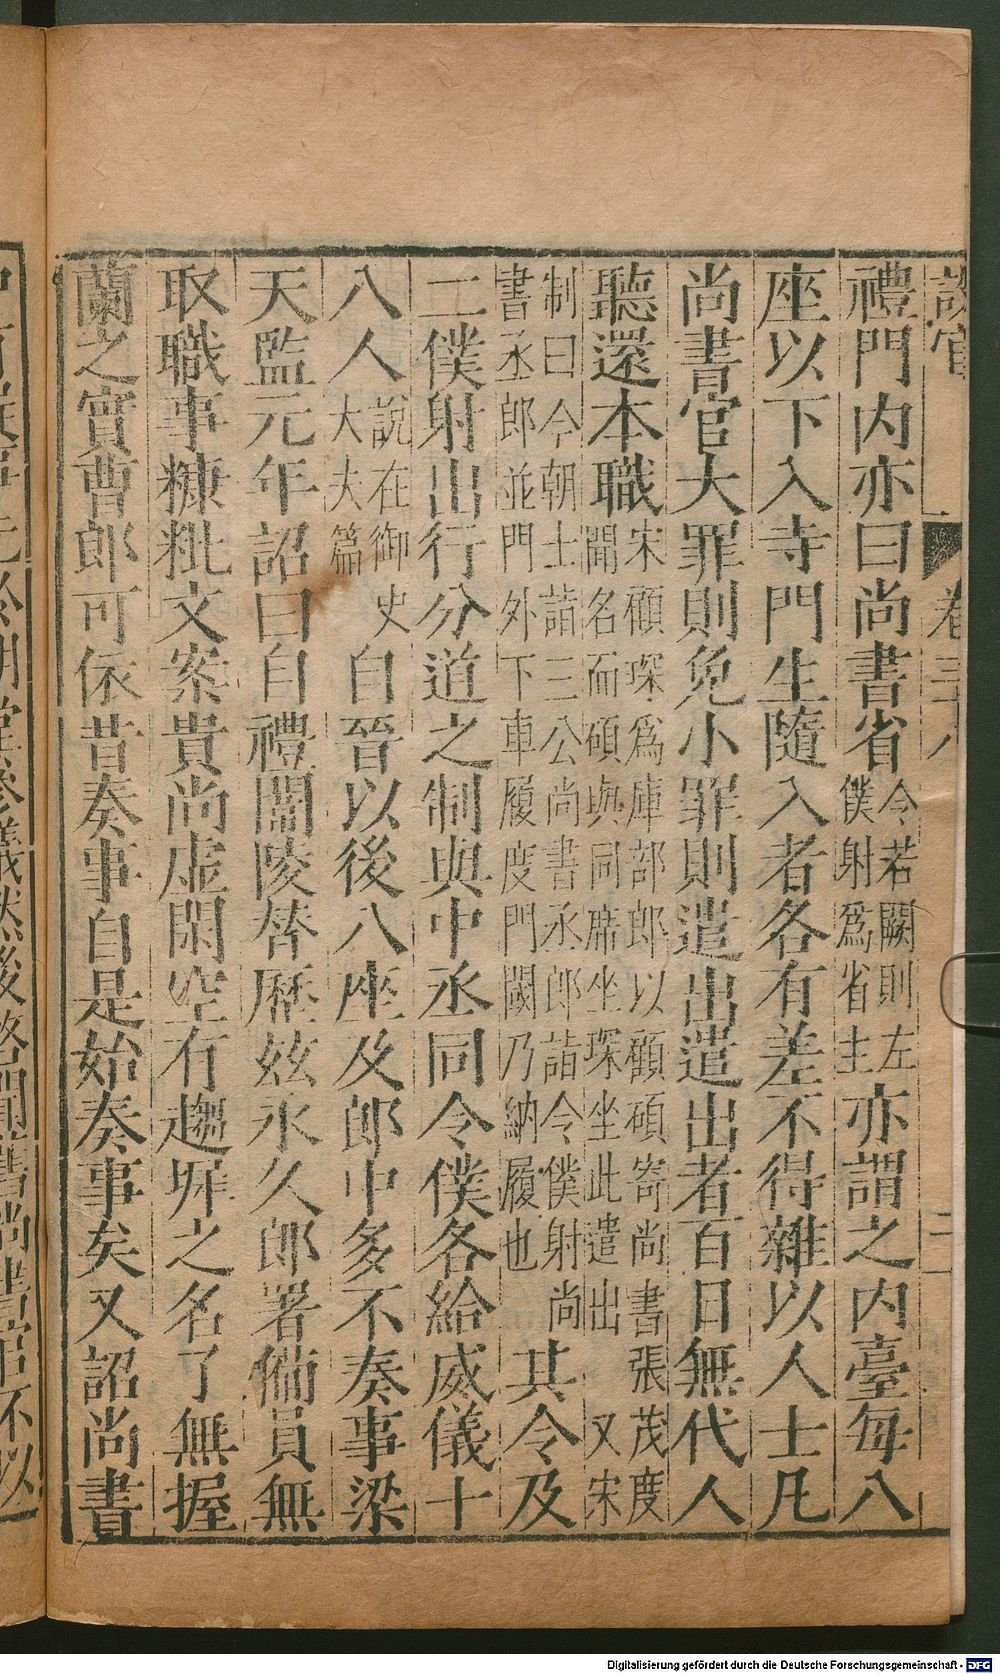 設官 卷三十八 二
禮門内亦曰尚書省令若闕則左
僕射爲省主亦謂之内臺每八
座以下入寺門生隨入者各有差不得雜以人士凡
尚書官大罪則免小罪則遣出遣出者百日無代人
聽還本職宋顧琛爲庫部郎以顧碩寄尚書張茂度
聞名而碩與同席坐琛坐此遣出又宋
制曰令朝士詣三公尚書丞郎詣令僕射尚
書丞郎並門外下車履度門閫乃納履也其令及
二僕射出行分道之制與中丞同令僕各給威儀十
八人說在御史
大夫篇自晉以後八座及郎中多不奏事梁
天監元年詔曰自禮闈陵替歴兹永久郎署備員無
取職事糠粃文案貴尚虚閑空有趨墀之名了無握
蘭之實曹郎可依昔奏事自是始奏事矣又詔尚書
於朝堂參議然後啓聞舊尚書官不以
Digitalisierung gefördert durch die Deutsche Forschungsgemeinschaft - DFG